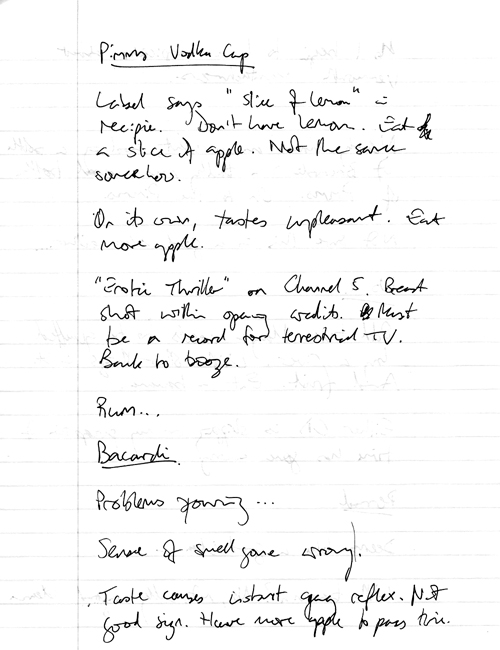 Pimms Vodka Cup
Label says "slice of lemon" in
recipie. Don't have lemon. Eat
a slice of apple. Not the same
somehow.
On its own, tastes unpleasant. Eat
more apple.
"Erotic Thriller" on Channel 5. Breast
shot within opening credits. Must
be a record for terrestrial TV.
Back to booze.
Rum...
Bacardi.
Problems pouring...
Sense of smell gone wrong.
Taste causes instant gag reflex. Not
good sign. Have more apple to pass time.